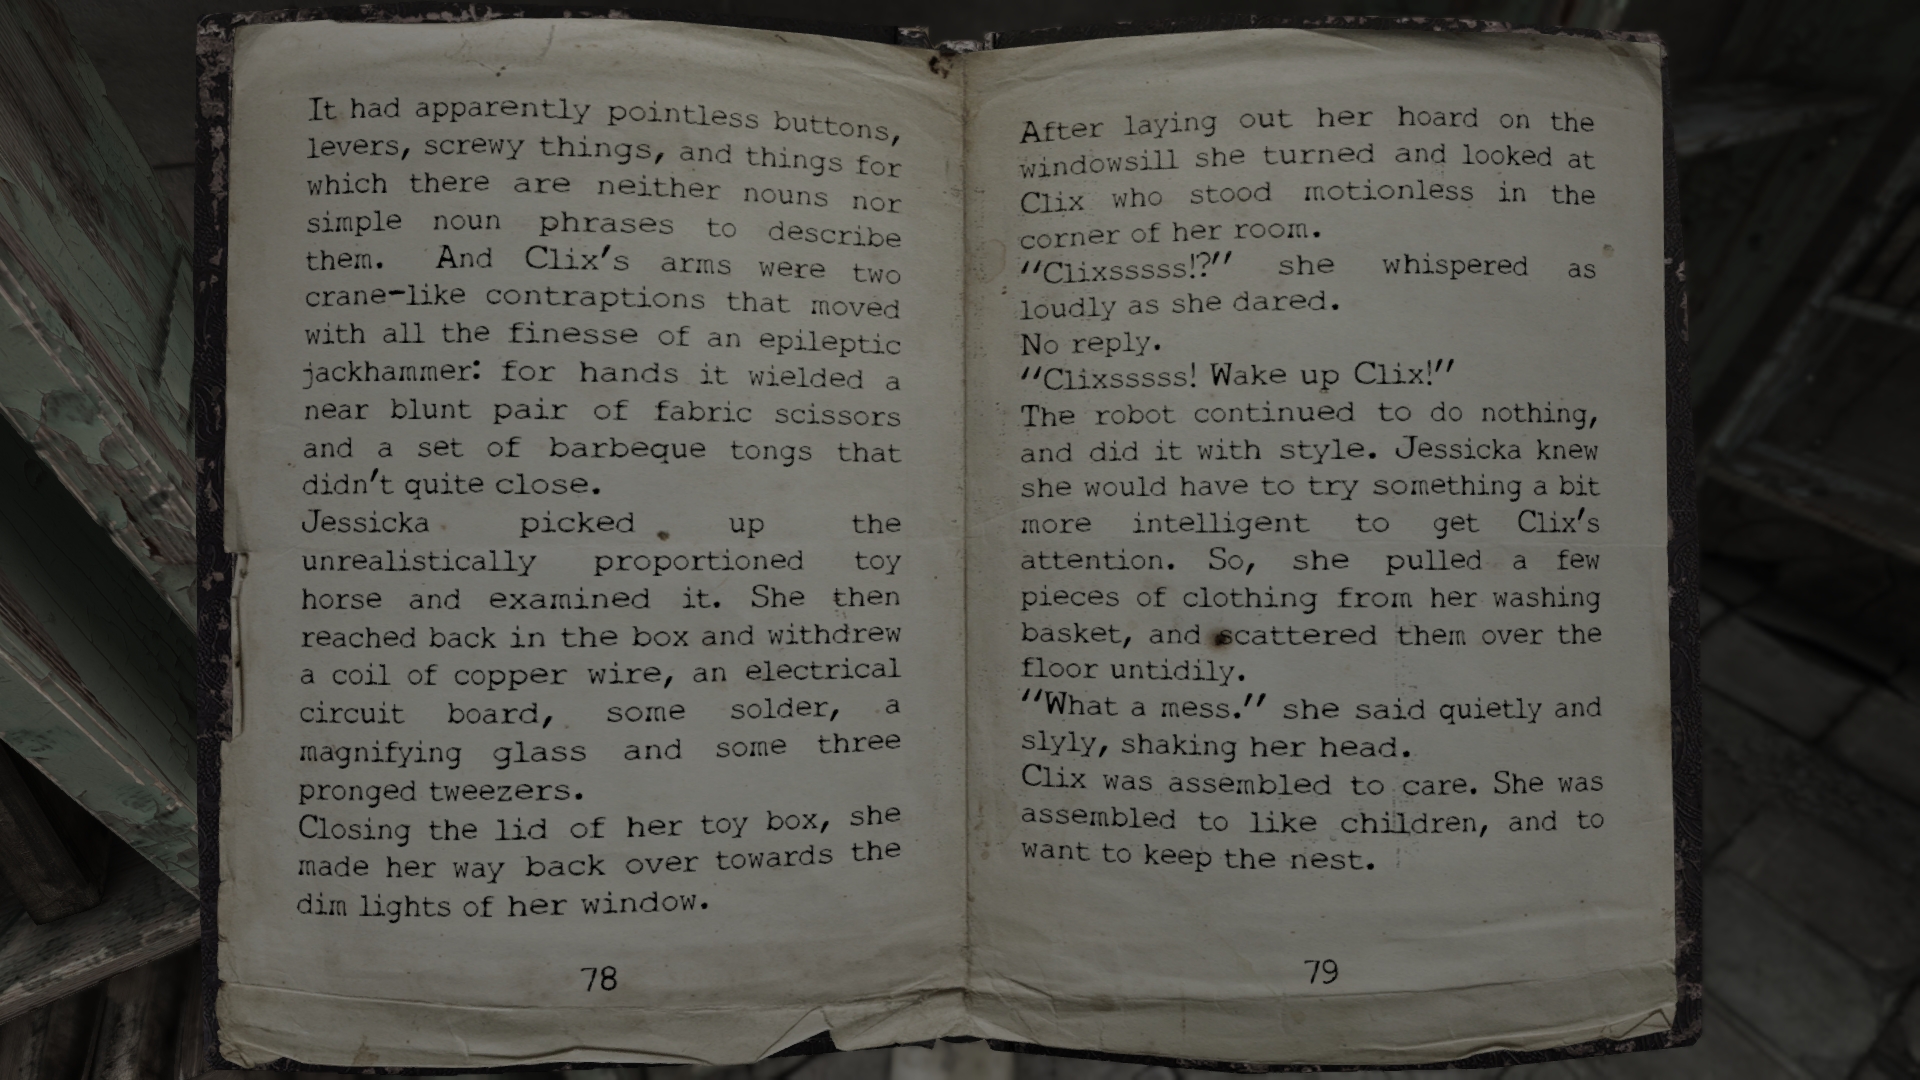 It had apparently pointless buttons,
levers, screwy things, and things for
which there are neither nouns nor
simple noun phrases to describe
them. And Clix's arms were two
crane-like contraptions that moved
with all the finesse of an epileptic
jackhammer: for hands it wielded a
near blunt pair of fabric scissors
and a set of barbeque tongs that
didn't quite close.
Jessicka picked up the
unrealistically proportioned toy
horse and examined it. She then
reached back in the box and withdrew
a coil of copper wire, an electrical
circuit board, some solder, a
magnifying glass and some three
pronged tweezers.
Closing the lid of her toy box, she
made her way back over towards the
dim lights of her window.
78
After laying out her hoard on the
windowsill she turned and looked at
Clix who stood motionless in the
corner of her room.
"Clixsssss!?" she whispered as
loudly as she dared.
No reply.
"Clixsssss! Wake up Clix!"
The robot continued to do nothing,
and did it with style. Jessicka knew
she would have to try something a bit
more intelligent to get Clix's
attention. So, she pulled a few
pieces of clothing from her washing
basket, and scattered them over the
floor untidily.
"What a mess." she said quietly and
slyly, shaking her head.
Clix was assembled to care. She was
assembled to like children, and to
want to keep the nest.
79